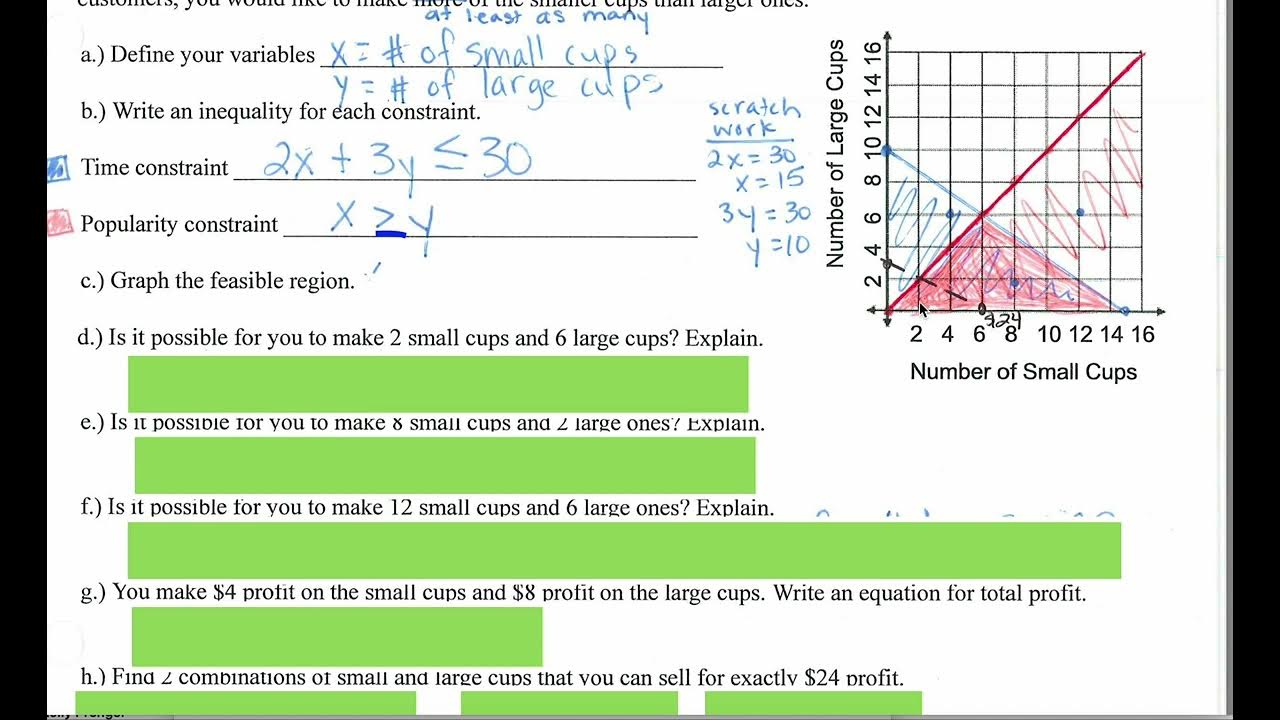 customers, you would like to make more of the smaller cups than larger ones.
at least as many
a.) Define your variables x = # of small cups
y = # of large cups
b.) Write an inequality for each constraint.
Time constraint 2x + 3y ≤ 30
Popularity constraint x ≥ y
scratch
work
2x = 30
x = 15
3y = 30
y = 10
c.) Graph the feasible region.
d.) Is it possible for you to make 2 small cups and 6 large cups? Explain.
e.) Is it possible for you to make 8 small cups and 2 large ones? Explain.
f.) Is it possible for you to make 12 small cups and 6 large ones? Explain.
g.) You make $4 profit on the small cups and $8 profit on the large cups. Write an equation for total profit.
h.) Find 2 combinations of small and large cups that you can sell for exactly $24 profit.
Number of Large Cups
16
14
12
10
8
6
4
2
2 4 6 8 10 12 14 16
Number of Small Cups